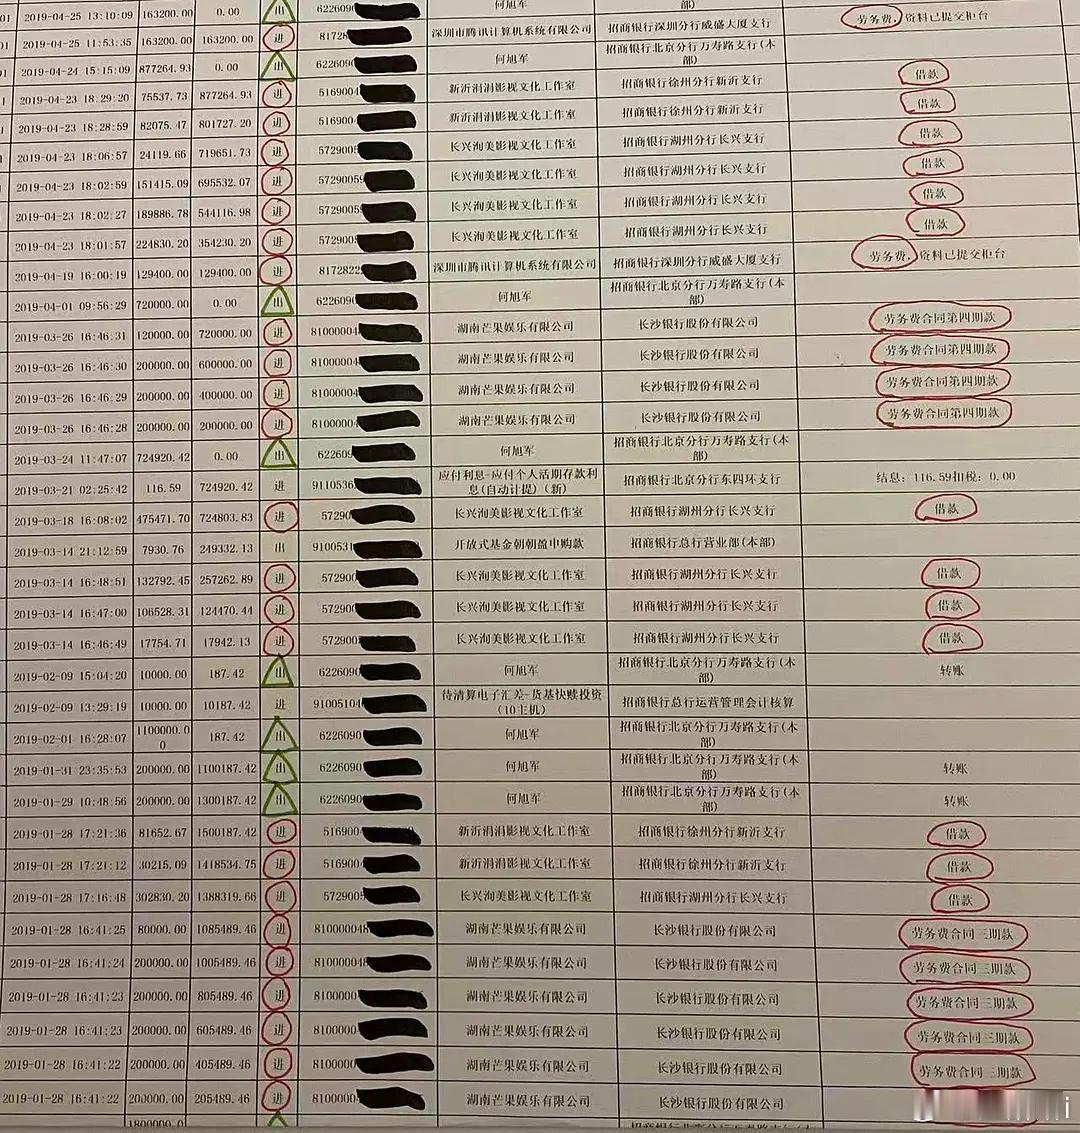 01 2019-04-25 13:10:09 163200.00 0.00 出 6226090 何旭军 部)
01 2019-04-25 11:53:35 163200.00 163200.00 进 81728 深圳市腾讯计算机系统有限公司 招商银行深圳分行威盛大厦支行 劳务费,资料已提交柜台
01 2019-04-24 15:15:09 877264.93 0.00 出 6226090 何旭军 招商银行北京分行万寿路支行(本部)
1 2019-04-23 18:29:20 75537.73 877264.93 进 5169004 新沂涓涓影视文化工作室 招商银行徐州分行新沂支行 借款
1 2019-04-23 18:28:59 82075.47 801727.20 进 516900 新沂涓涓影视文化工作室 招商银行徐州分行新沂支行 借款
1 2019-04-23 18:06:57 24119.66 719651.73 进 5729005 长兴洵美影视文化工作室 招商银行湖州分行长兴支行 借款
2019-04-23 18:02:59 151415.09 695532.07 进 57290059 长兴洵美影视文化工作室 招商银行湖州分行长兴支行 借款
2019-04-23 18:02:27 189886.78 544116.98 进 5729005 长兴洵美影视文化工作室 招商银行湖州分行长兴支行 借款
2019-04-23 18:01:57 224830.20 354230.20 进 5729005 长兴洵美影视文化工作室 招商银行湖州分行长兴支行 借款
2019-04-19 16:00:19 129400.00 129400.00 进 8172822 深圳市腾讯计算机系统有限公司 招商银行深圳分行威盛大厦支行 劳务费,资料已提交柜台
2019-04-01 09:56:29 720000.00 0.00 出 622609 何旭军 招商银行北京分行万寿路支行(本部)
2019-03-26 16:46:31 120000.00 720000.00 进 81000004 湖南芒果娱乐有限公司 长沙银行股份有限公司 劳务费合同第四期款
2019-03-26 16:46:30 200000.00 600000.00 进 81000004 湖南芒果娱乐有限公司 长沙银行股份有限公司 劳务费合同第四期款
2019-03-26 16:46:29 200000.00 400000.00 进 8100000 湖南芒果娱乐有限公司 长沙银行股份有限公司 劳务费合同第四期款
2019-03-26 16:46:28 200000.00 200000.00 进 8100000 湖南芒果娱乐有限公司 长沙银行股份有限公司 劳务费合同第四期款
2019-03-24 11:47:07 724920.42 0.00 出 622609 何旭军 招商银行北京分行万寿路支行(本部)
2019-03-21 02:25:42 116.59 724920.42 进 9110536 应付利息-应付个人活期存款利息(自动计提)(新) 招商银行北京分行东四环支行 结息: 116.59扣税: 0.00
2019-03-18 16:08:02 475471.70 724803.83 进 57290 长兴洵美影视文化工作室 招商银行湖州分行长兴支行 借款
2019-03-14 21:12:59 7930.76 249332.13 出 9100531 开放式基金朝朝盈申购款 招商银行总行营业部(本部)
2019-03-14 16:48:51 132792.45 257262.89 进 572900 长兴洵美影视文化工作室 招商银行湖州分行长兴支行 借款
2019-03-14 16:47:00 106528.31 124470.44 进 572900 长兴洵美影视文化工作室 招商银行湖州分行长兴支行 借款
2019-03-14 16:46:49 17754.71 17942.13 进 572900 长兴洵美影视文化工作室 招商银行湖州分行长兴支行 借款
2019-02-09 15:04:20 10000.00 187.42 出 6226090 何旭军 招商银行北京分行万寿路支行(本部) 转账
2019-02-09 13:29:19 10000.00 10187.42 进 91005104 待清算电子汇差-货基快赎投资(10主机) 招商银行总行运营管理会计核算
2019-02-01 16:28:07 1100000.00 187.42 出 6226090 何旭军 招商银行北京分行万寿路支行(本部)
2019-01-31 23:35:53 200000.00 1100187.42 出 6226090 何旭军 招商银行北京分行万寿路支行(本部) 转账
2019-01-29 10:48:56 200000.00 1300187.42 出 6226090 何旭军 招商银行北京分行万寿路支行(本部) 转账
2019-01-28 17:21:36 81652.67 1500187.42 进 516900 新沂涓涓影视文化工作室 招商银行徐州分行新沂支行 借款
2019-01-28 17:21:12 30215.09 1418534.75 进 516900 新沂涓涓影视文化工作室 招商银行徐州分行新沂支行 借款
2019-01-28 17:16:48 302830.20 1388319.66 进 572900 长兴洵美影视文化工作室 招商银行湖州分行长兴支行 借款
2019-01-28 16:41:25 80000.00 1085489.46 进 81000004 湖南芒果娱乐有限公司 长沙银行股份有限公司 劳务费合同三期款
2019-01-28 16:41:24 200000.00 1005489.46 进 81000004 湖南芒果娱乐有限公司 长沙银行股份有限公司 劳务费合同三期款
2019-01-28 16:41:23 200000.00 805489.46 进 8100000 湖南芒果娱乐有限公司 长沙银行股份有限公司 劳务费合同三期款
2019-01-28 16:41:23 200000.00 605489.46 进 8100000 湖南芒果娱乐有限公司 长沙银行股份有限公司 劳务费合同三期款
2019-01-28 16:41:22 200000.00 405489.46 进 8100000 湖南芒果娱乐有限公司 长沙银行股份有限公司 劳务费合同三期款
2019-01-28 16:41:22 200000.00 205489.46 进 8100000 湖南芒果娱乐有限公司 长沙银行股份有限公司
1800000.0